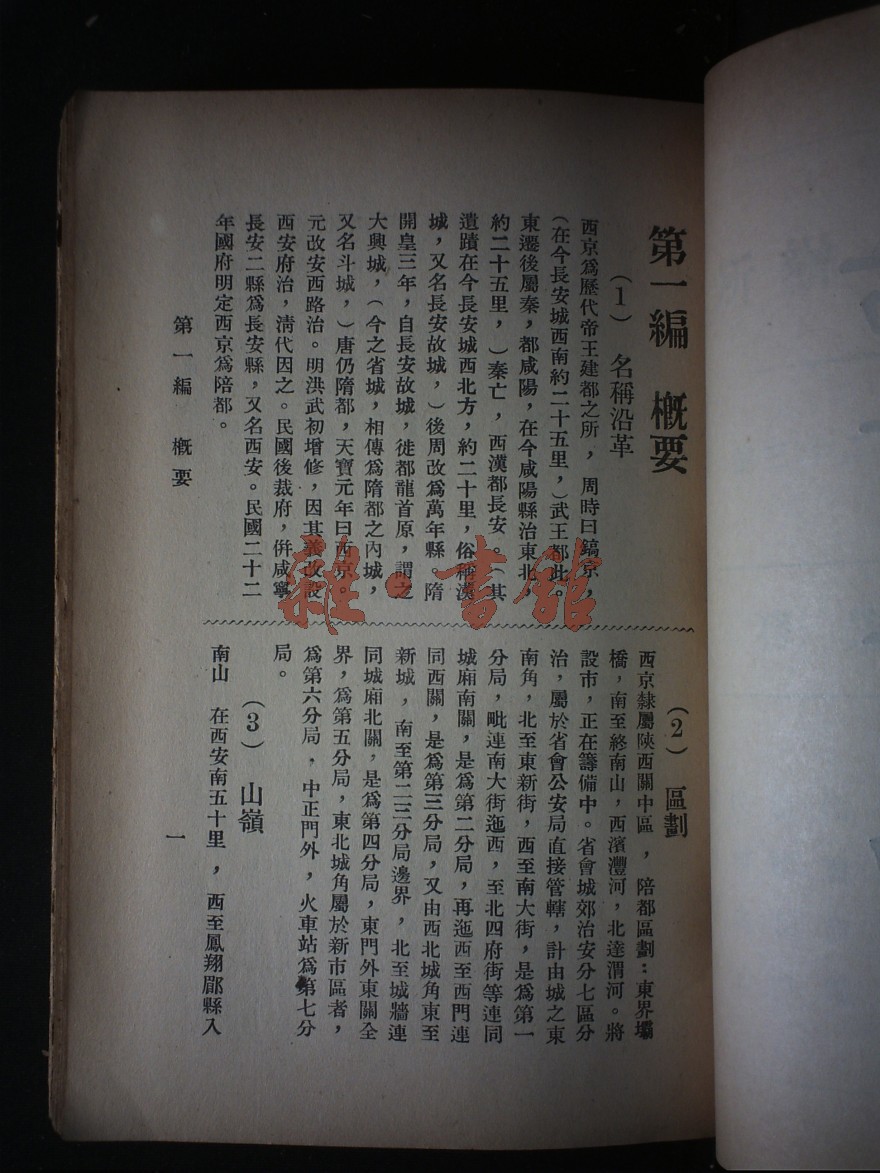 第一編　概要
(1)　名稱沿革
西京爲歷代帝王建都之所，周時曰鎬京，
(在今長安城西南約二十五里，)武王都此。
東遷後屬秦，都咸陽，在今咸陽縣治東北，
約二十五里，)秦亡，西漢都長安。(其
遺蹟在今長安城西北方，約二十里，俗稱漢
城，又名長安故城，)後周改爲萬年縣。隋
開皇三年，自長安故城，徙都龍首原，謂之
大興城，(今之省城，相傳爲隋都之內城，
又名斗城，)唐仍隋都，天寶元年曰西京。
元改安西路治。明洪武初增修，因其義改設
西安府治，清代因之。民國後裁府，倂咸寧
長安二縣爲長安縣，又名西安。民國二十二
年國府明定西京爲陪都。
(2)　區劃
西京隸屬陝西關中區，陪都區劃：東界壩
橋，南至終南山，西濱灃河，北達渭河。將
設市，正在籌備中。省會城郊治安分七區分
治，屬於省會公安局直接管轄，計由城之東
南角，北至東新街，西至南大街，是爲第一
分局，毗連南大街迤西，至北四府街等連同
城廂南關，是爲第二分局，再迤西至西門連
同西關，是爲第三分局，又由西北城角東至
新城，南至第二三分局邊界，北至城牆連
同城廂北關，是爲第四分局，東門外東關全
界，爲第五分局，東北城角屬於新市區者，
爲第六分局，中正門外，火車站爲第七分
局。
(3)　山嶺
南山　在西安南五十里，西至鳳翔郿縣入
第一編　概要
一
雜·書館